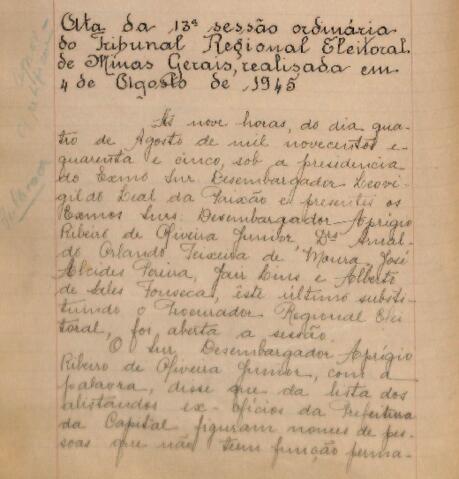 Ata da 13ª sessão ordinária
do Tribunal Regional Eleitoral
de Minas Gerais, realizada em
4 de Agosto de 1945
Ás nove horas, do dia qua-
tro de Agosto de mil novecentos e
quarenta e cinco, sob a presidencia
do Exmo Snr Desembargador Leovi-
gildo Leal da Paixão e presentes os
Exmos Snrs. Desembargador Aprígio
Ribeiro de Oliveira Junior, Drs Arnal-
do Orlando Teixeira de Moura, José
Alcides Pereira, Jair Lins e Alberto
de Sales Fonseca, êste último substi-
tuindo o Procurador Regional Elei-
toral, foi aberta a sessão.
O Snr Desembargador Aprígio
Ribeiro de Oliveira Junior, com a
palavra, disse que da lista dos
alistandos ex-ofícios da Prefeitura
da Capital figuram nomes de pes-
soas que não teem função perma-